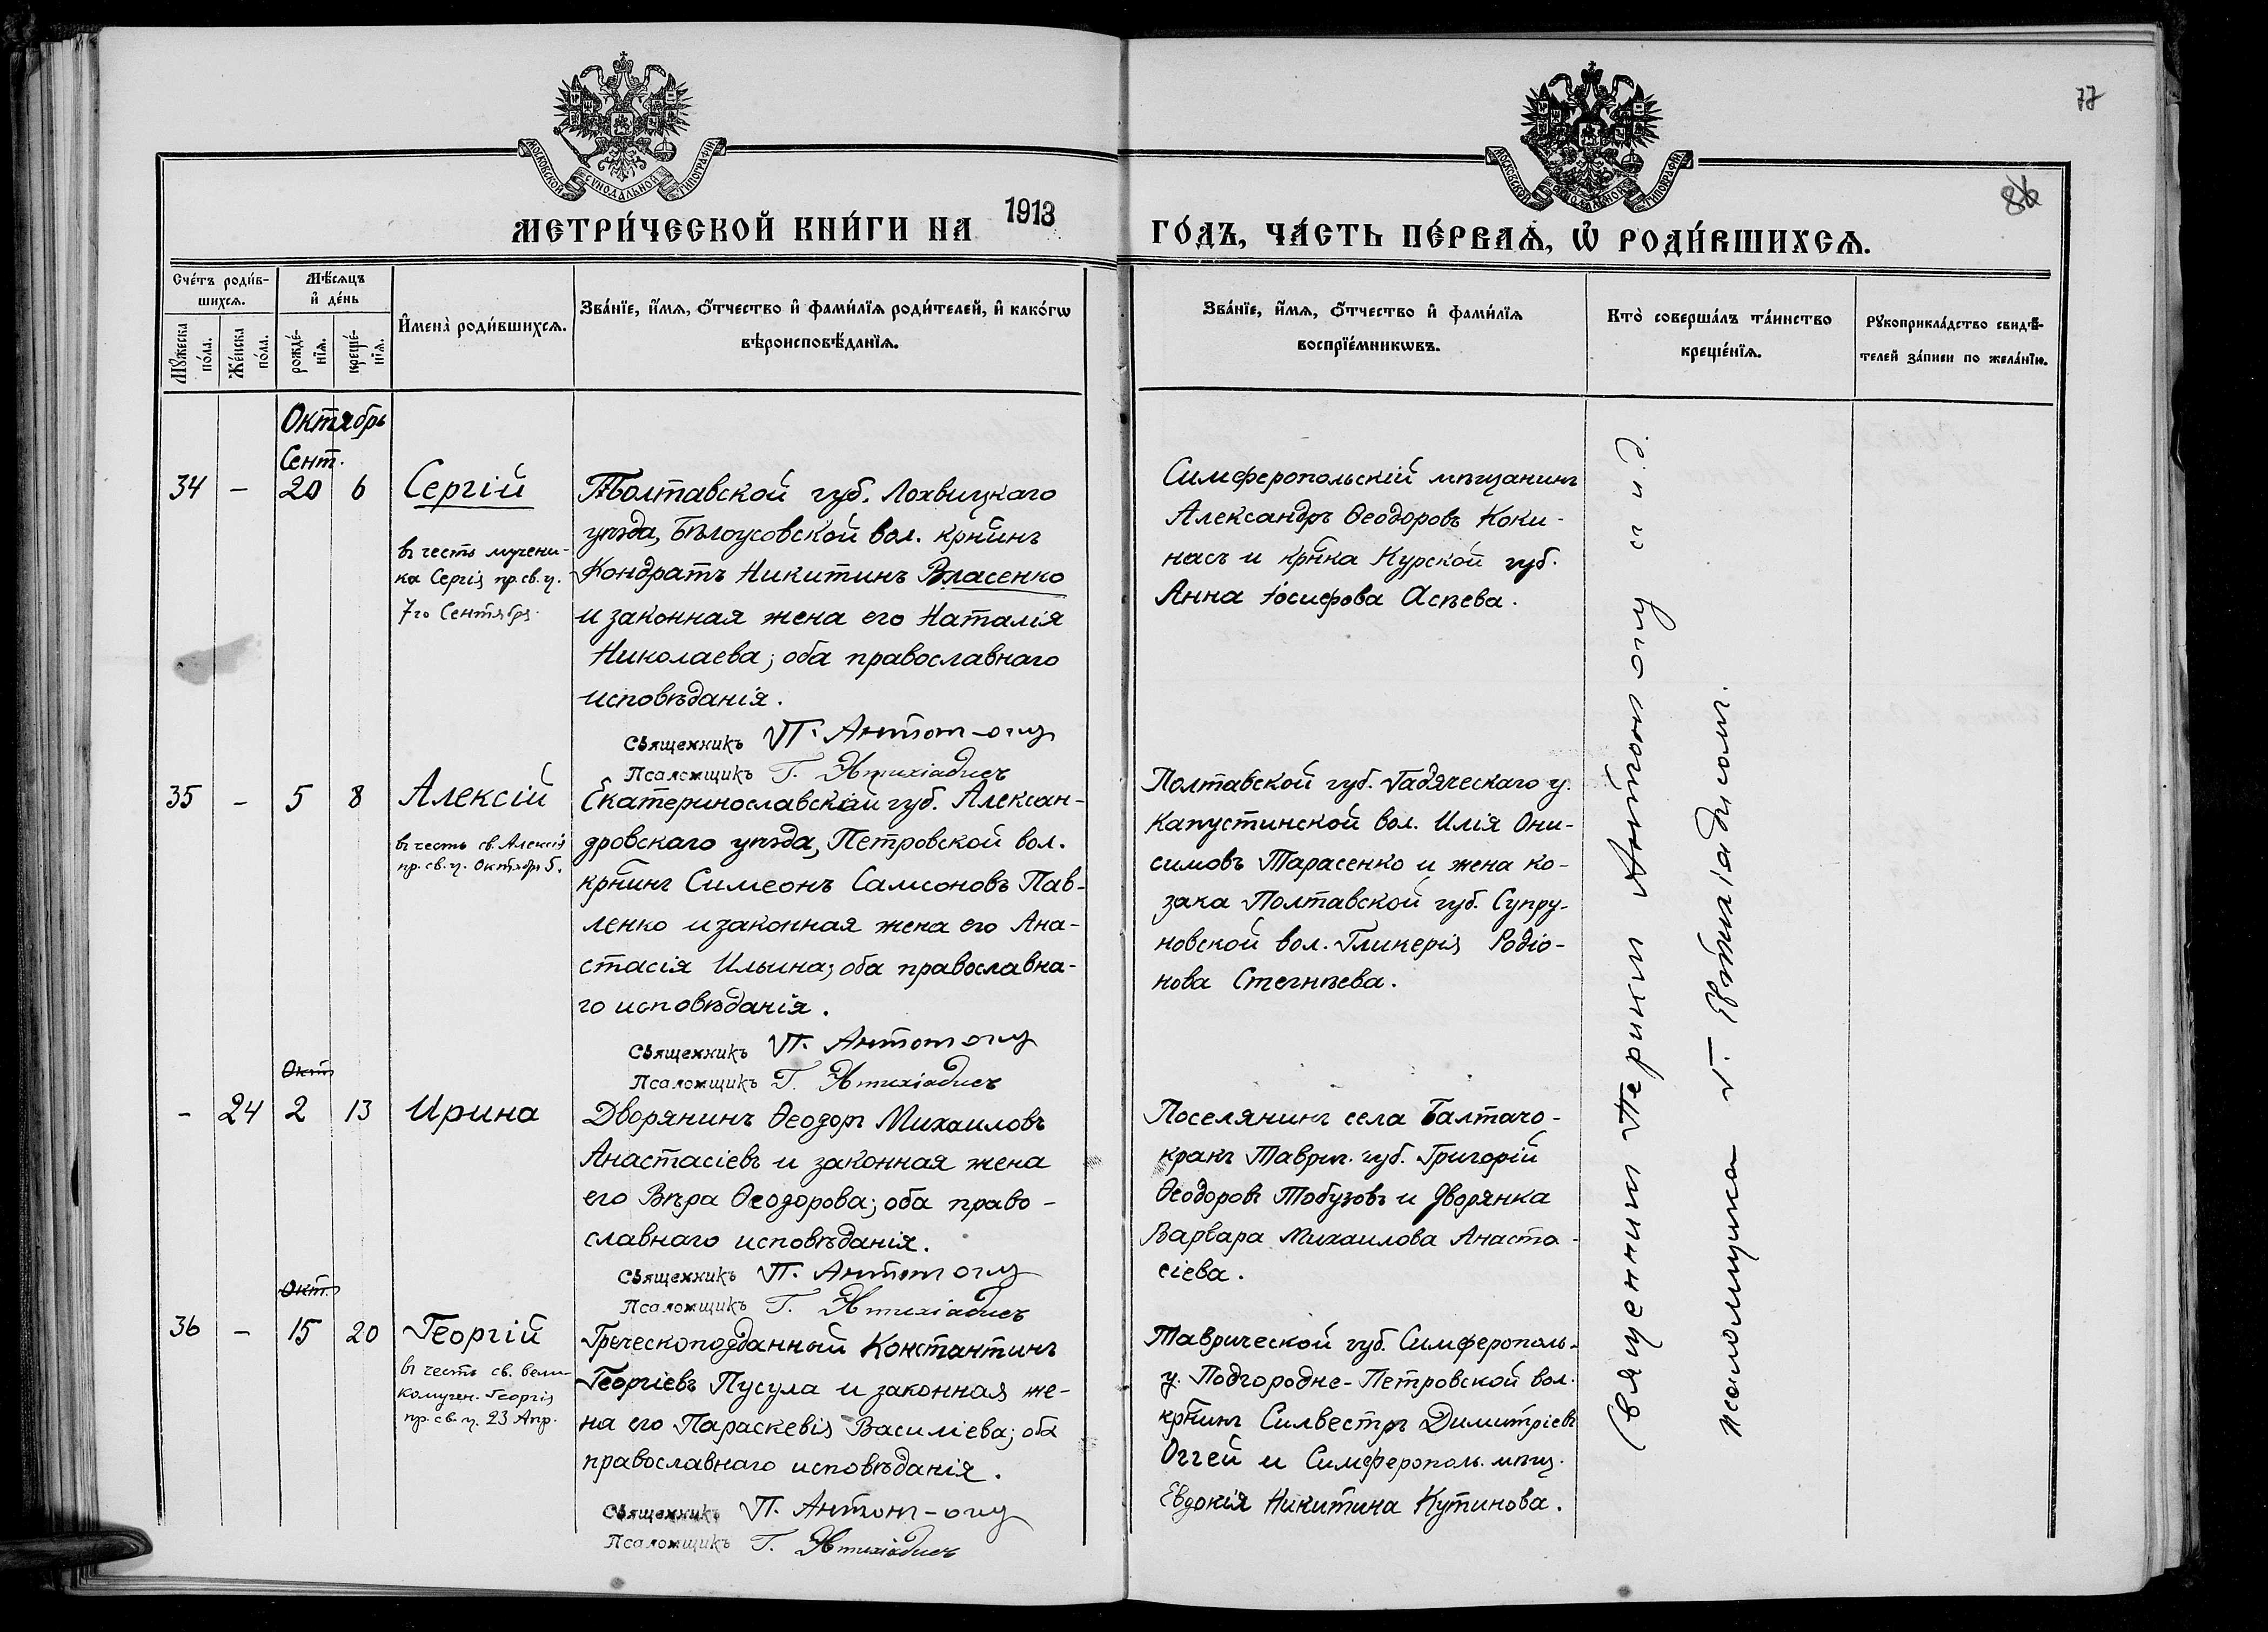 77
86
МОСКОВСКОЙ СѴНОДАЛЬНОЙ ТИПОГРАФІИ
МОСКОВСКОЙ СѴНОДАЛЬНОЙ ТИПОГРАФІИ
МЕТРИ́ЧЕСКОЙ КНИ́ГИ НА 1913 ГО́ДЪ, ЧА́СТЬ ПЕ́РВАѦ, Ѡ҆ РОДИ́ВШИХСѦ.
Сче́тъ роди́в-
шихсѧ.
Мꙋ́жеска
по́ла.
Же́нска
по́ла.
Мѣ́сѧцъ
и҆ де́нь
рожде́-
нїѧ.
креще́-
нїѧ.
И҆мена̀ роди́вшихсѧ.
Зва́нїе, и҆́мѧ, ѻ҆́тчество и҆ фами́лїѧ роди́телей, и҆ како́гѡ
вѣроисповѣ́данїѧ.
Зва́нїе, и҆́мѧ, ѻ҆́тчество и҆ фами́лїѧ
воспрїе́мникѡвъ.
Кто̀ соверша́лъ та́инство
креще́нїѧ.
Рꙋкоприкла́дство свидѣ́-
телей за́писи по жела́нїю.
Октябрь
Сент.
34 - 20 6 Сергій
въ честь мучени-
ка Сергія пр. св. ц.
7го Сентября.
Полтавской губ. Лохвицкаго
уѣзда, Бѣлоусовской вол. кр̅нинъ
Кондратъ Никитинъ Власенко
и законная жена его Наталія
Николаева; оба православнаго
исповѣданія.
Священникъ П. Антонъ-оглу
Псаломщикъ Г. Евтихіадисъ
Симферопольскій мѣщанинъ
Александръ Ѳеодоровъ Коки-
насъ и кр̅нка Курской губ.
Анна Іосифова Асѣева.
35 - 5 8 Алексій
въ честь св. Алексія
пр. св. ц. Октябр. 5.
Екатеринославской губ. Алексан-
дровскаго уѣзда, Петровской вол.
кр̅нинъ Симеонъ Самсоновъ Пав-
ленко и законная жена его Ана-
стасія Ильина; оба православна-
го исповѣданія.
Священникъ П. Антонъ оглу
Псаломщикъ Г. Евтихіадисъ
Полтавской губ. Гадяческаго у.
Капустинской вол. Илія Они-
симовъ Тарасенко и жена ко-
зака Полтавской губ. Супру-
новской вол. Гликерія Родіо-
нова Стегнѣева.
Окт.
- 24 2 13 Ирина
Дворянинъ Ѳеодоръ Михаиловъ
Анастасіевъ и законная жена
его Вѣра Ѳеодорова; оба право-
славнаго исповѣданія.
Священникъ П. Антонъ оглу
Псаломщикъ Г. Евтихіадисъ
Поселянинъ села Балтачо-
кракъ Таврич. губ. Григорій
Ѳеодоровъ Тобузовъ и дворянка
Варвара Михаилова Анаста-
сіева.
Окт.
36 - 15 20 Георгій
въ честь св. вели-
комучен. Георгія
пр. св. ц. 23 Апр.
Греческоподданный Константинъ
Георгіевъ Пусула и законная же-
на его Параскевія Василіева; оба
православнаго исповѣданія.
Священникъ П. Антонъ-оглу
Псаломщикъ Г. Евтихіадисъ
Таврической губ. Симферополь.
у. Подгородне-Петровской вол.
кр̅нинъ Силвестръ Димитріевъ
Оггей и Симферополь. мѣщ.
Евдокія Никитина Кутинова.
Священник Антоноглу съ п.
псаломщика Г. Евтихіадисомъ.